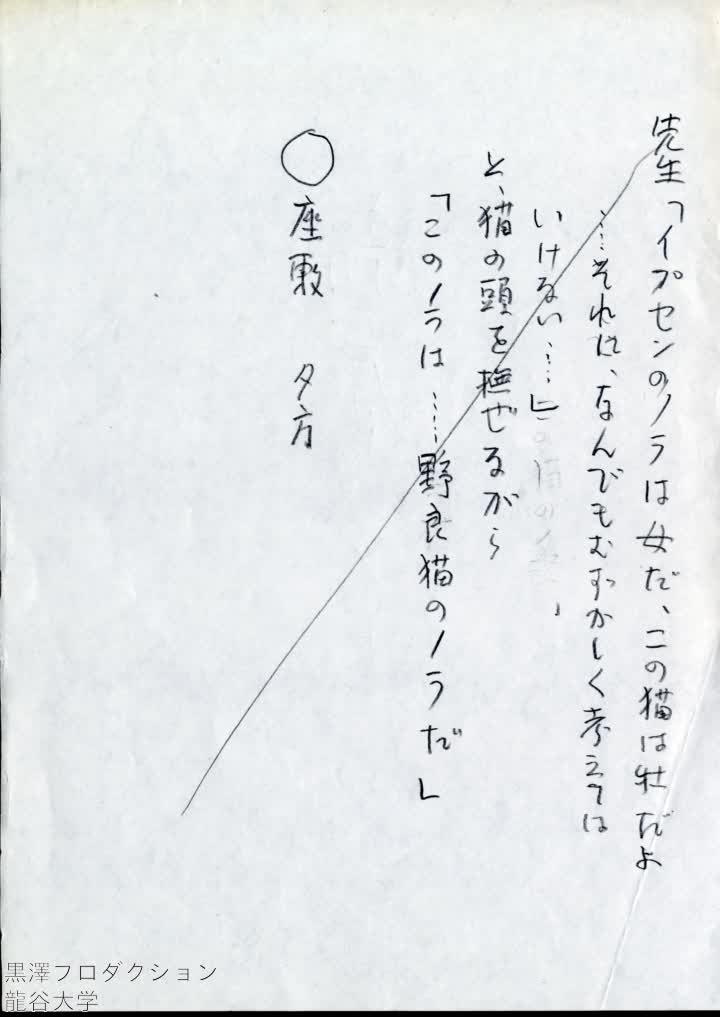 先生「イプセンのノラは女だ、この猫は牡だよ
……それに、なんでもむずかしく考えては
いけない……」
と、猫の頭を撫ぜながら
「このノラは……野良猫のノラだ」
○座敷　夕方
黒澤プロダクション
龍谷大学